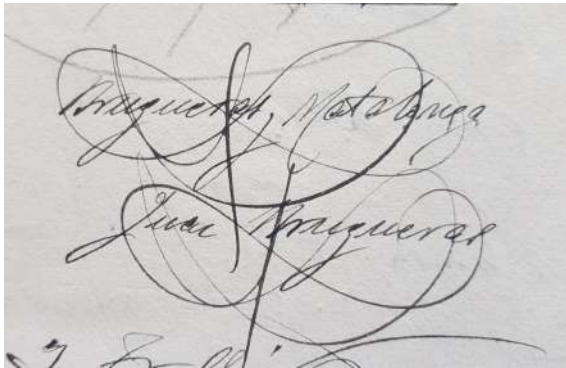 Brugueras y Matalonga
Juan Brugueras